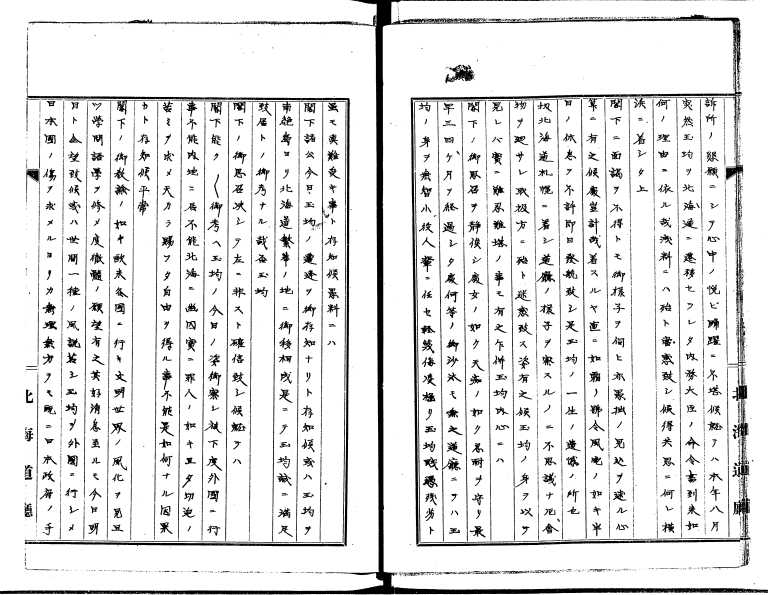 訴所ノ懇願ニシテ心中ノ悦ビ踊躍ニ不堪候処ラハ本年八月
突然玉均ヲ北海道ニ遷移セラレタ内務大臣ノ命令書到来如
何ノ理由ニ依ル哉浅料ニハ殆ト當惑致シ候得共思ニ何レ横
浜ニ着シタ上
閣下ニ面謁ヲ不得トモ御様子ヲ伺ヒ亦愚拙ノ見込ヲ達ル心
算ニ有之候處豈計哉着スルヤ直ニ如霜ノ號令風電ノ如キ半
日ノ休息ヲ不許即日発航致シ是玉均ノ一生ノ遺憾ノ所也
扨北海道札幌ニ着シ道廳ノ様子ヲ察スルノニ不思議ナ厄會
物ヲ遇サレ取扱方ニ殆ト迷惑致ス姿有之候玉均ノ身ヲ以テ
見レバ實ニ難忍難堪ノ事モ有之乍併玉均内心ニハ
閣下ノ御取召ヲ静俟シ處女ノ如ク天命ノ如ク忍耐ヲ守リ最
早三四ケ月ヲ経過シタ處何等ノ御沙汰モ無之道廳ニテハ玉
均ノ身ヲ無智小役人輩ニ任セ軽蔑侮凌極リ玉均賎愚残劣ト
北海道廳
虽モ実難受キ事ト存知候愚料ニハ
閣下諸公今日玉均ノ遭逢ヲ御存知ナリト存知候或ハ玉均ヲ
南絶島ヨリ北海道繁華ノ地ニ御移相成是ニテ玉均誠ニ滿足
致居トノ御考ナル哉否玉均
閣下ノ御思召决シテ左ニ非スト確信致シ候処ラハ
閣下能ク〱御考ヘ玉均ノ今日ノ姿御察シ被下度外國ニ行
事不能内地ニ居不能北海ニ幽囚實ニ罪人ノ如キ亘タ切迫ノ
苦ミヲ求メ天カラ賜フタ自由ヲ得ル事不能是如何ナル因果
カト存知候乎常
閣下ノ御教諭ノ如キ欧米各國ニ行キ文明世界ノ風化ヲ見且
ツ學問語學ヲ修メ度微體ノ願望有之其好消息至ルモ今日明
日ト企望致候或ハ世間一種ノ風説若シ玉均ヲ外國ニ行シメ
日本國ノ傷ヲ求メルヨリカ無理無方ヲモ現ニ日本政府ノ手
北海道廳